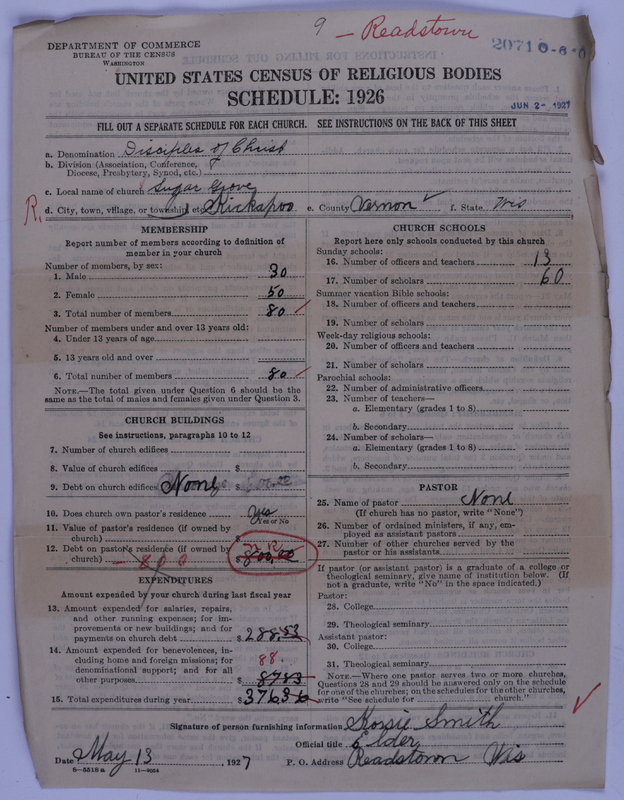 9 - Readstown
DEPARTMENT OF COMMERCE
BUREAU OF THE CENSUS
WASHINGTON
20710-6-0
UNITED STATES CENSUS OF RELIGIOUS BODIES
SCHEDULE: 1926
JUN 2- 1927
FILL OUT A SEPARATE SCHEDULE FOR EACH CHURCH. SEE INSTRUCTIONS ON THE BACK OF THIS SHEET
a. Denomination Disciples of Christ
b. Division (Association, Conference, Diocese, Presbytery, Synod, etc.)
c. Local name of church Sugar Grove
R. d. City, town, village, or township etc. Kickapoo e. County Vernon f. State Wis
MEMBERSHIP
Report number of members according to definition of
member in your church
Number of members, by sex:
1. Male 30
2. Female 50
3. Total number of members 80
Number of members under and over 13 years old:
4. Under 13 years of age
5. 13 years old and over
6. Total number of members 80
NOTE.—The total given under Question 6 should be the
same as the total of males and females given under Question 3.
CHURCH BUILDINGS
See instructions, paragraphs 10 to 12
7. Number of church edifices
8. Value of church edifices $
9. Debt on church edifices None $
10. Does church own pastor's residence Yes
Yes or No
11. Value of pastor's residence (if owned by
church) $
12. Debt on pastor's residence (if owned by
church) - 800 $ 800.00
EXPENDITURES
Amount expended by your church during last fiscal year
13. Amount expended for salaries, repairs,
and other running expense; for im-
provements or new buildings; and for
payments on church debt $ 288.53
14. Amount expended for benevolences, in-
cluding home and foreign missions; for
denominational support; and for all
other purposes 88. $ 8783
15. Total expenditures during year $ 37636
CHURCH SCHOOLS
Report here only schools conducted by this church
Sunday schools:
16. Number of officers and teachers 13
17. Number of scholars 60
Summer vacation Bible schools:
18. Number of officers and teachers
19. Number of scholars
Week-day religious schools:
20. Number of officers and teachers
21. Number of scholars
Parochial schools:
22. Number of administrative officers
23. Number of teachers—
a. Elementary (grades 1 to 8)
b. Secondary
24. Number of scholars—
a. Elementary (grades 1 to 8)
b. Secondary
PASTOR
25. Name of pastor None
(If church has no pastor, write "None")
26. Number of ordained ministers, if any, em-
ployed as assistant pastors
27. Number of other churches served by the
pastor or his assistants
If pastor (or assistant pastor) is a graduate of a college or
theological seminary, give name of institution below. (If
not a graduate, write "No" in the space indicated.)
Pastor:
28. College
29. Theological seminary
Assistant pastor:
30. College
31. Theological seminary
NOTE.—Where one pastor serves two or more churches,
Questions 28 and 29 should be answered only on the schedule
for one of the churches; on the schedules for the other churches,
write "See schedule for church."
Signature of person furnishing information Smith
Official title Elder
Date May 13, 1927 P. O. Address Readstown Wis
8-5518 a 11-9664